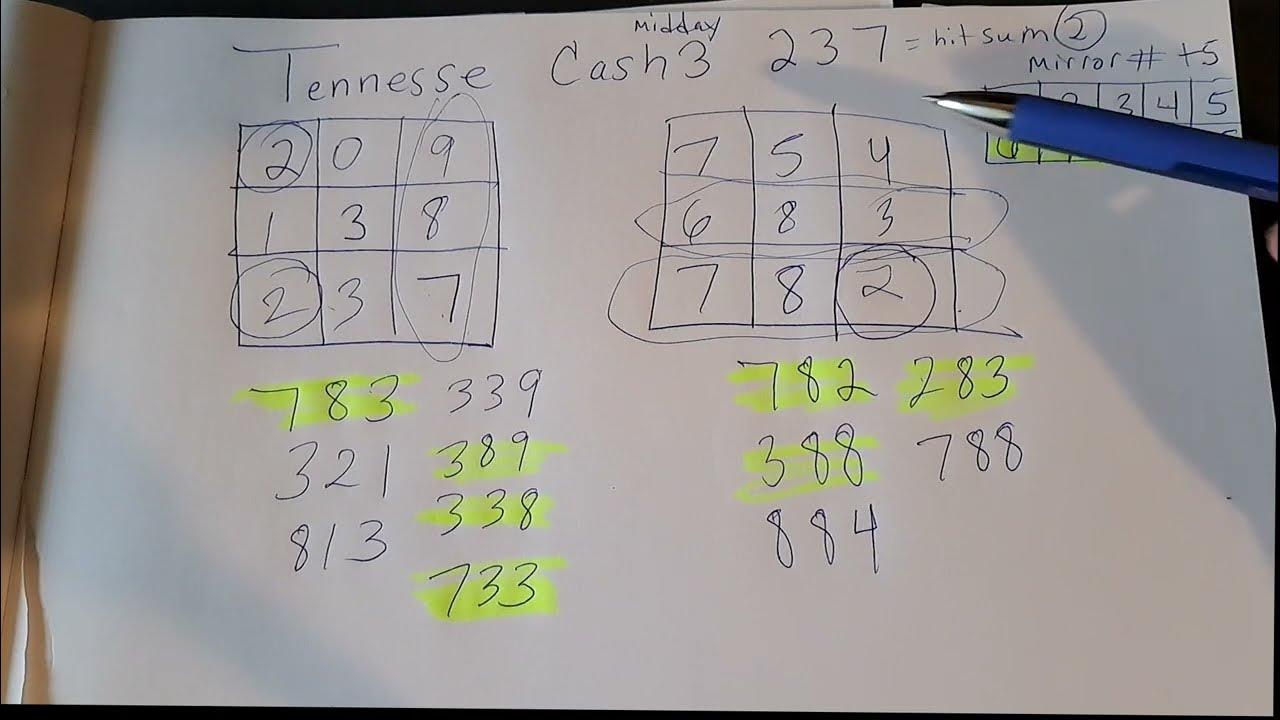 Midday
Tennesse Cash3 237 = hit sum 2
Mirror # +5
3 4 5
2 0 9
1 3 8
2 3 7
7 5 4
6 8 3
7 8 2
783 339
321 389
813 338
733
782 283
388 788
884